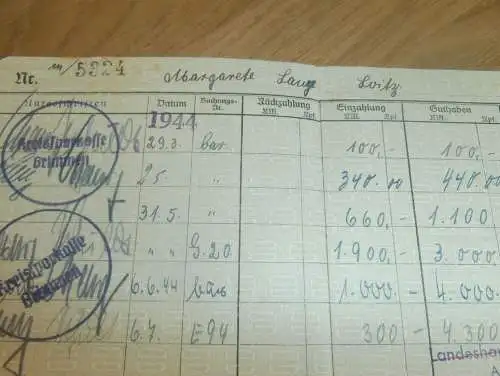 Nr. m/5224 Margarete Lange Loitz.
Unterschriften Datum Buchungs-Nr. Rückzahlung RM. Rpf. Einzahlung RM. Rpf. Guthaben RM. Rpf.
1944
Kreissparkasse Grimmen 29.3. bar 100,- 100,-
2.5. " 340.00 440.00
31.5. " 660,- 1.100
Kreissparkasse Grimmen " " G.20 1.900,- 3.000
6.6.44 bar 1.000,- 4.000
6.7. E94 300- 4.300
Landesha